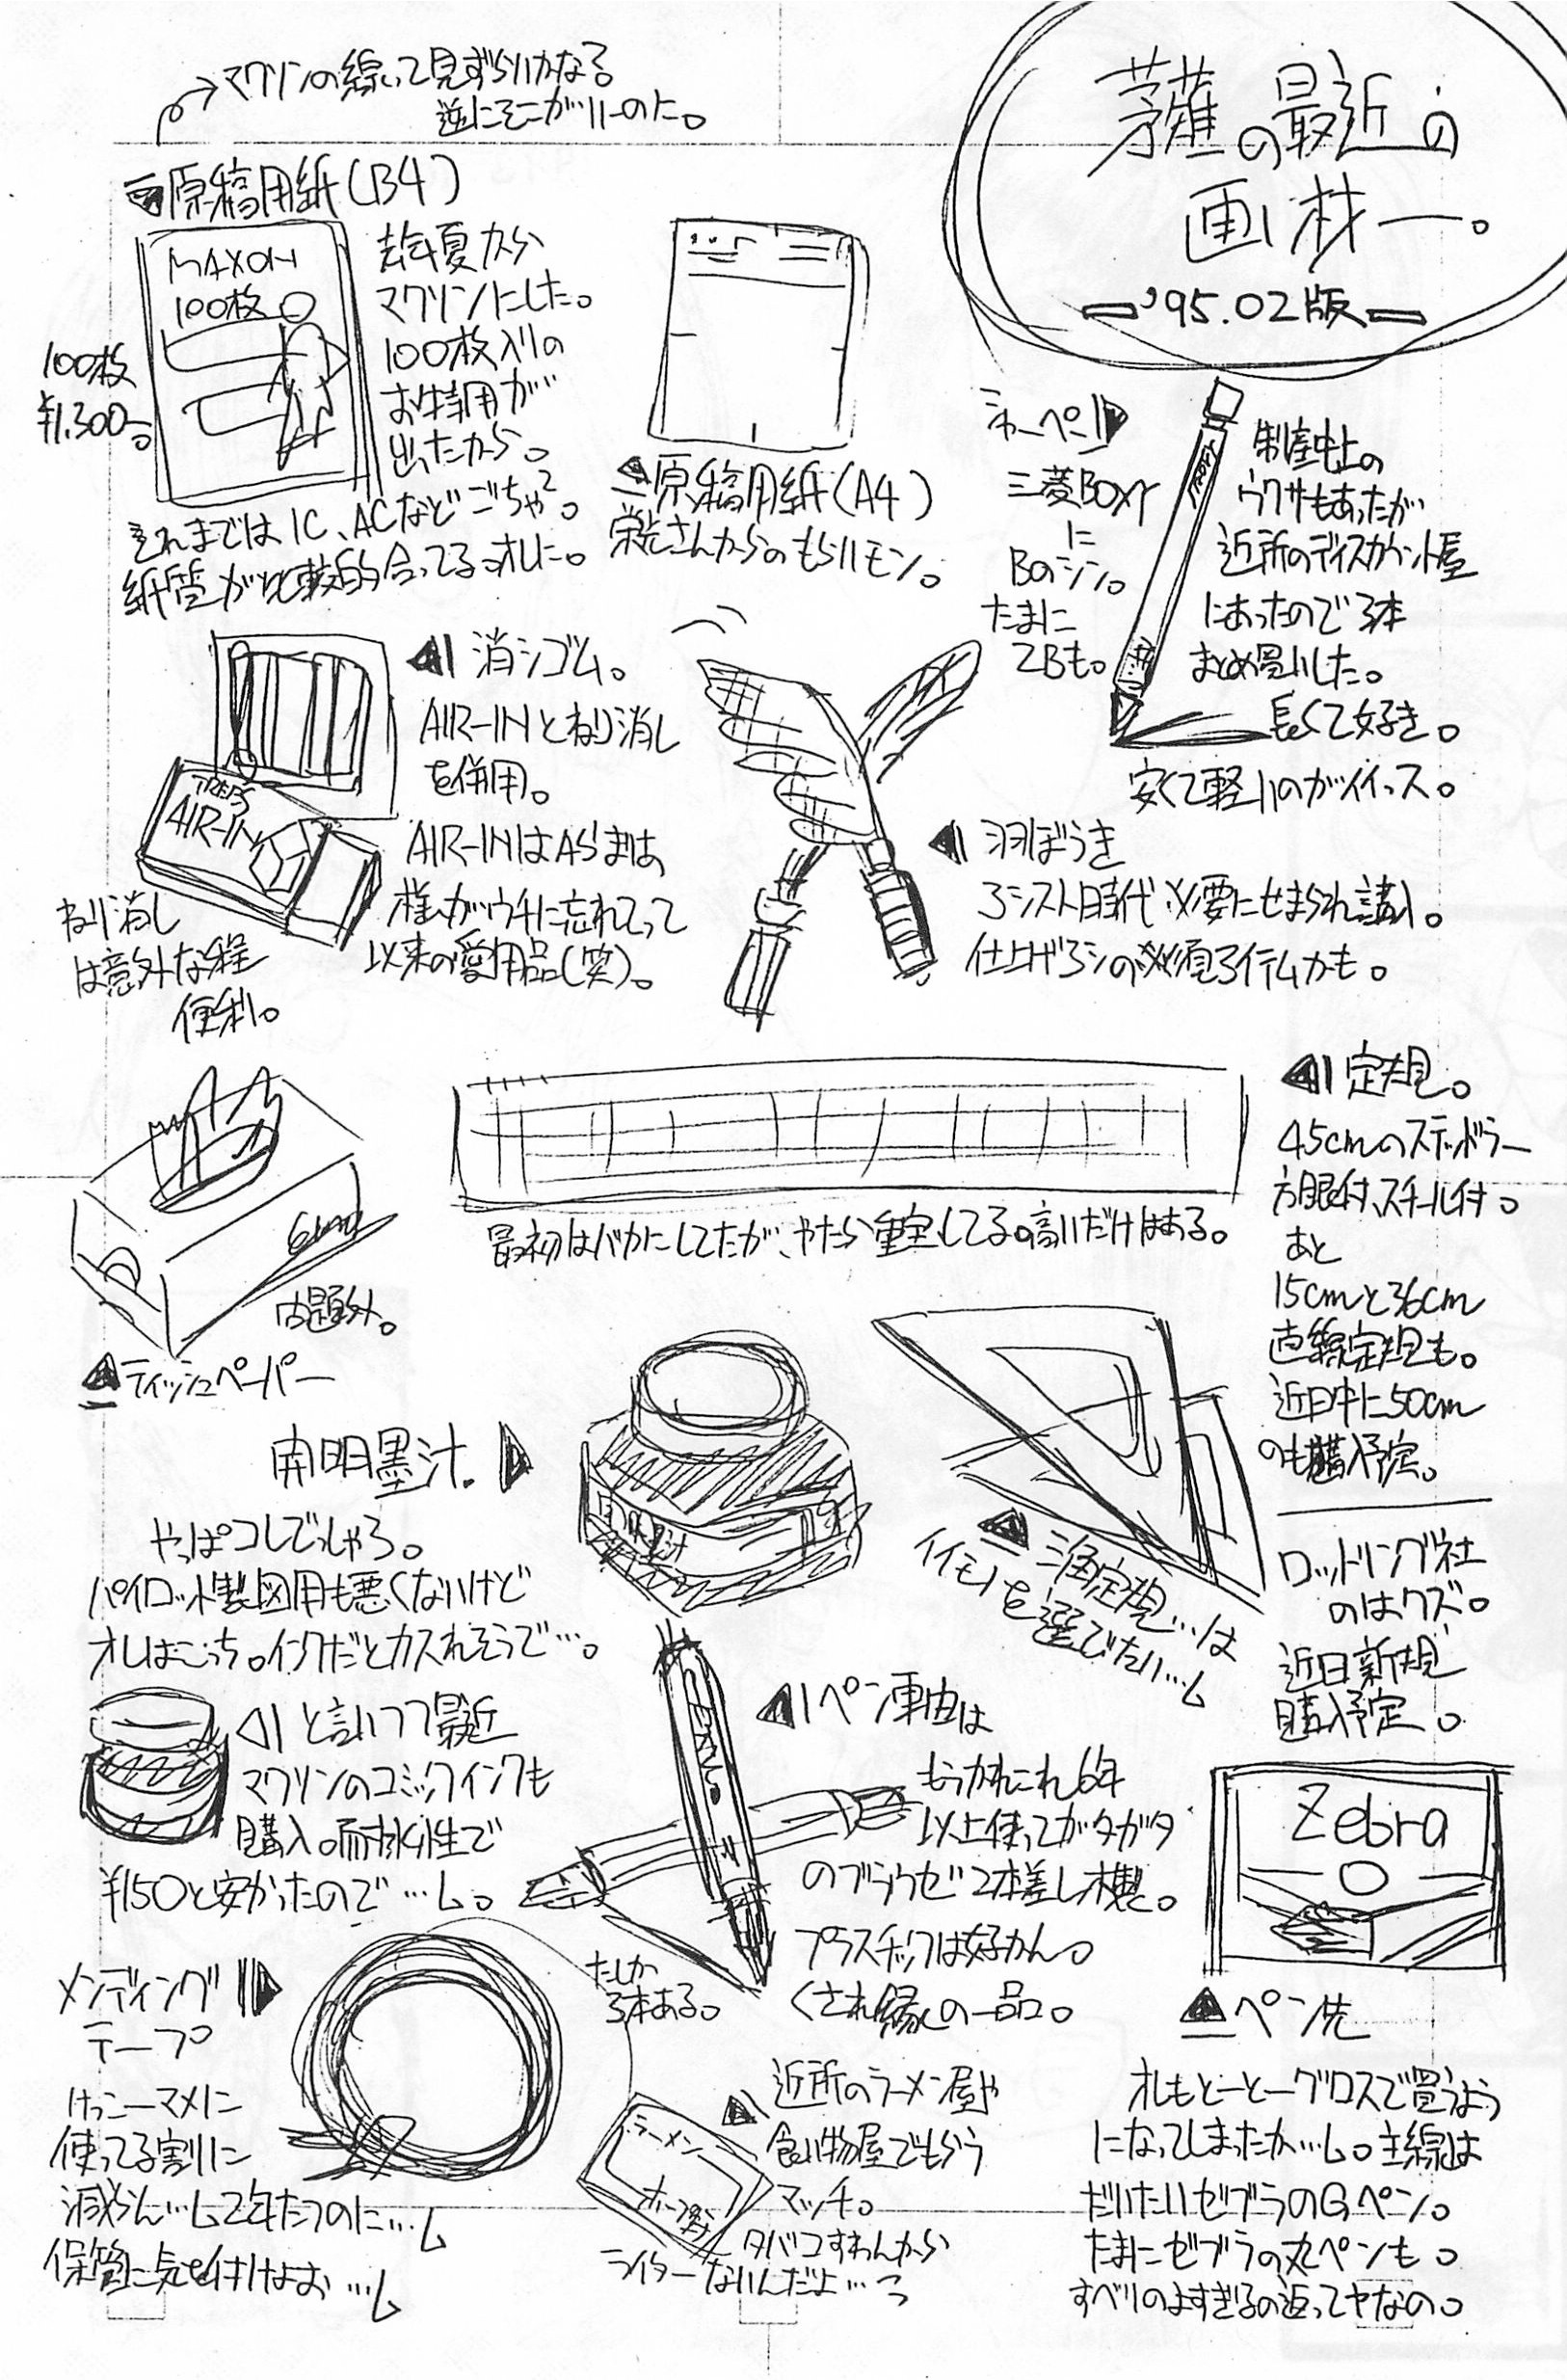 最近の
画材一。
'95.02版
マクソンの線って見ずらいかなる。
逆にそこがいーのに。
原稿用紙(B4)
MAXON
100枚
100枚
¥1.300-
去年夏から
マクソンにした。
100枚入りの
お特用が
出たから。
それまではIC、ACなどごちゃ²。
紙質が比較的合ってる。オレに。
原稿用紙(A4)
栄光さんからのもらいモン。
シャーペン
三菱BOXY
に
Bのシン。
たまに
2Bも。
制産中止の
ウワサもあったが
近所のディスカウント屋
にあったので3本
まとめ買いした。
長くて好き。
安くて軽いのがイイッス。
消シゴム。
AIR-INとねり消し
を併用。
AIR-INはASま
様がウチに忘れてって
以来の愛用品(笑)。
AIR-IN
ねり消し
は意外な程
便利。
羽ぼうき
アシスト時代、必要にせまられ購入。
仕上げアシの必須アイテムかも。
定規。
45cmのステッドラー
方眼付、スチール付。
あと
15cmと36cm
直線定規も。
近日中に50cm
のも購入予定。
最初はバカにしてたが、やたら重宝してる。高いだけはある。
問題外。
ティッシュペーパー
開明墨汁。
やっぱコレでっしゃろ。
パイロット製図用も悪くないけど
オレはこっち。インクだとカスれそうで…。
三角定規…は
イイモノを選びたい…
ロットリング社
のはクズ。
近日新規
購入予定。
と言いつつ最近
マクソンのコミックインクも
購入。耐水性で
¥150と安かったので…。
ペン軸は
もうかれこれ6年
以上使ってガタガタ
のブラウゼ2本差し木製。
プラスチックは好かん。
くされ縁の一品。
たしか
3本ある。
Zebra
ペン先
オレもとーとーグロスで買うよう
になってしまったか…。主線は
だいたいゼブラのGペン。
たまにゼブラの丸ペンも。
すべりのよすぎるの返ってヤなの。
メンディング
テープ
けっこーマメに
使ってる割に
減らん…2年たつのに…
保管に気を付けよお…
ラーメン
近所のラーメン屋や
食い物屋でもらう
マッチ。
タバコすわんから
ライターないんだよ…